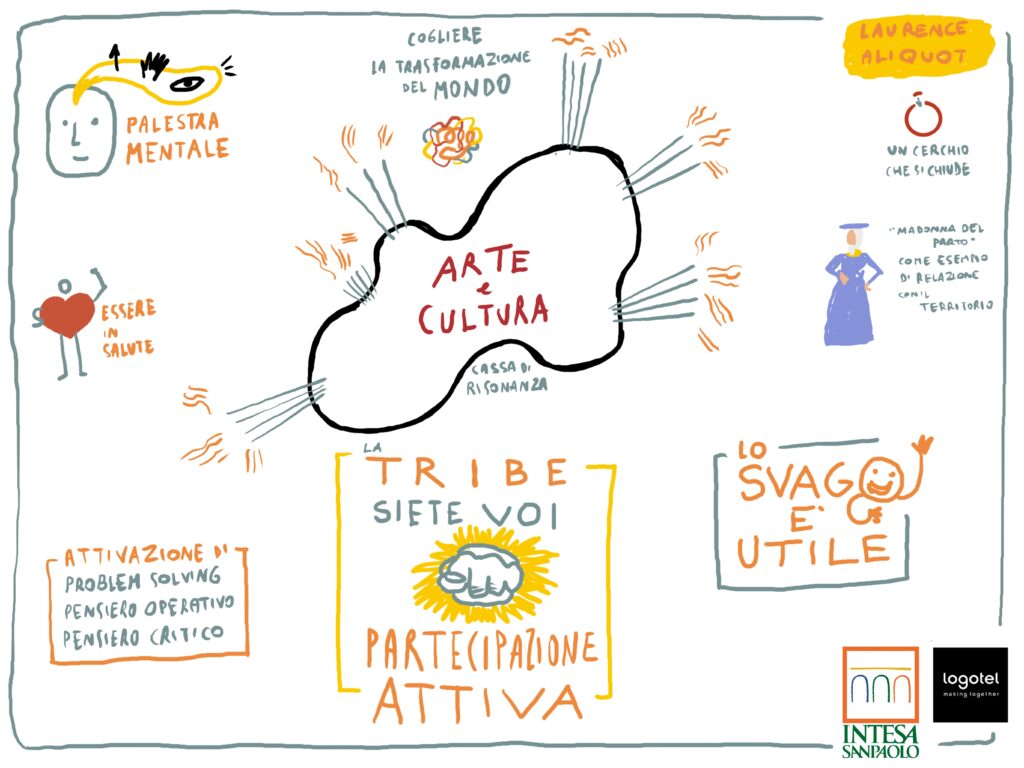 LAURENCE
ALIQUOT
COGLIERE
LA TRASFORMAZIONE
DEL MONDO
PALESTRA
MENTALE
UN CERCHIO
CHE SI CHIUDE
"MADONNA DEL
PARTO"
COME ESEMPIO
DI RELAZIONE
CON IL
TERRITORIO
ARTE
e
CULTURA
ESSERE
IN
SALUTE
CASSA DI
RISONANZA
LA
TRIBE
SIETE VOI
PARTECIPAZIONE
ATTIVA
LO
SVAGO
E'
UTILE
ATTIVAZIONE DI
PROBLEM SOLVING
PENSIERO OPERATIVO
PENSIERO CRITICO
INTESA
SANPAOLO
logotel
making together